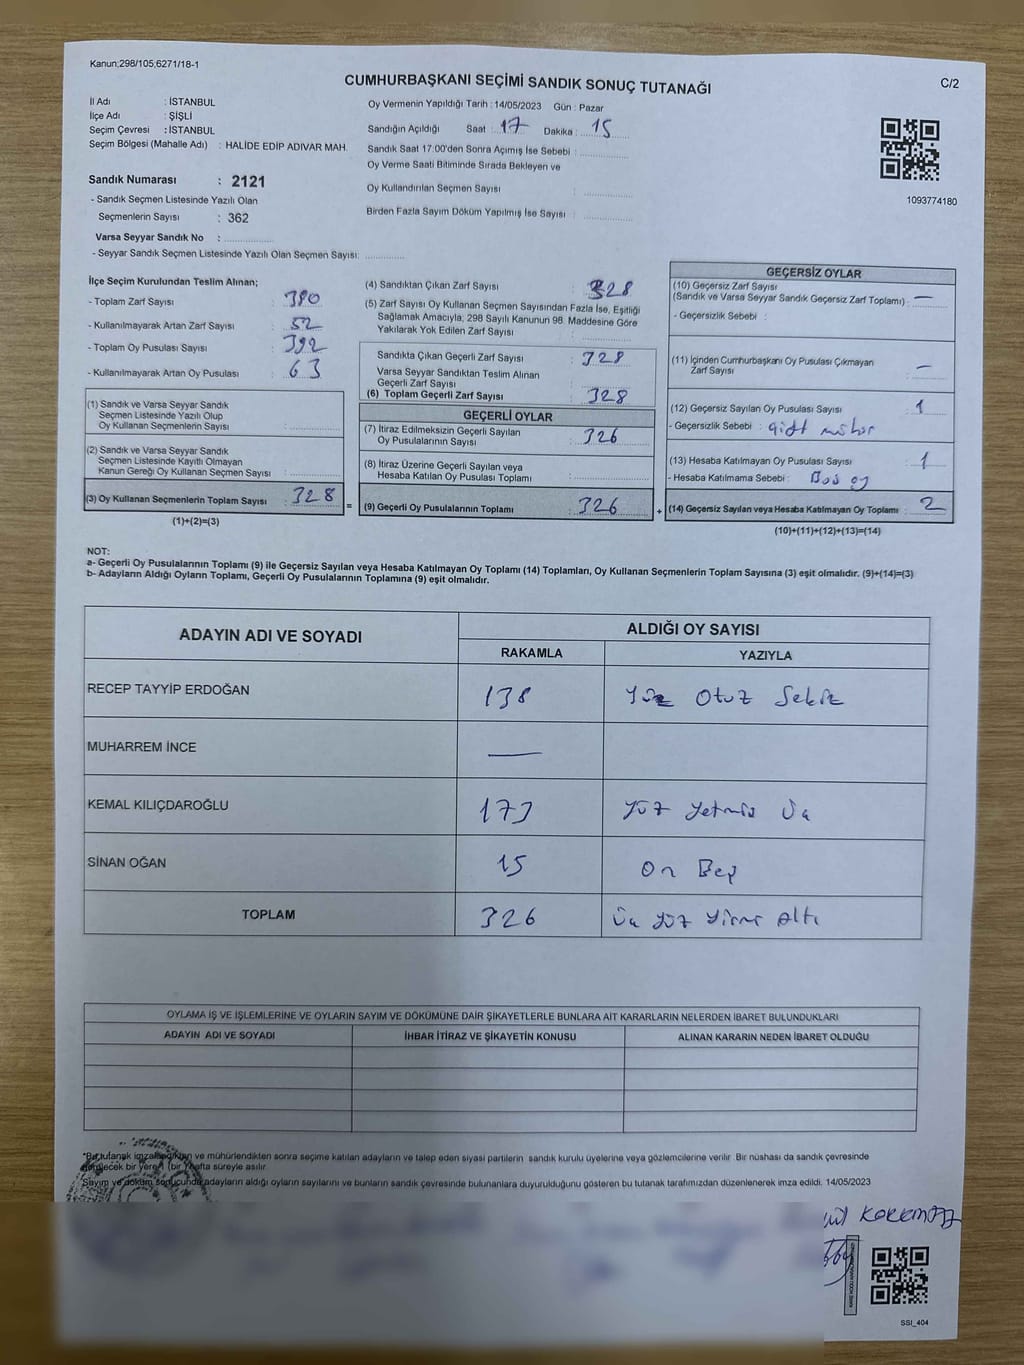 Kanun;298/105;6271/18-1
CUMHURBAŞKANI SEÇİMİ SANDIK SONUÇ TUTANAĞI
C/2
İl Adı : İSTANBUL
İlçe Adı : ŞİŞLİ
Seçim Çevresi : İSTANBUL
Seçim Bölgesi (Mahalle Adı) : HALİDE EDİP ADIVAR MAH.
Sandık Numarası : 2121
- Sandık Seçmen Listesinde Yazılı Olan
Seçmenlerin Sayısı : 362
Varsa Seyyar Sandık No :
- Seyyar Sandık Seçmen Listesinde Yazılı Olan Seçmen Sayısı:
Oy Vermenin Yapıldığı Tarih : 14/05/2023 Gün : Pazar
Sandığın Açıldığı Saat : 17 Dakika : 15
Sandık Saat 17:00'den Sonra Açımış İse Sebebi :
Oy Verme Saati Bitiminde Sırada Bekleyen ve
Oy Kullandırılan Seçmen Sayısı :
Birden Fazla Sayım Döküm Yapılmış İse Sayısı :
1093774180
İlçe Seçim Kurulundan Teslim Alınan;
- Toplam Zarf Sayısı : 380
- Kullanılmayarak Artan Zarf Sayısı : 52
- Toplam Oy Pusulası Sayısı : 392
- Kullanılmayarak Artan Oy Pusulası : 63
(1) Sandık ve Varsa Seyyar Sandık
Seçmen Listesinde Yazılı Olup
Oy Kullanan Seçmenlerin Sayısı :
(2) Sandık ve Varsa Seyyar Sandık
Seçmen Listesinde Kayıtlı Olmayan
Kanun Gereği Oy Kullanan Seçmen Sayısı :
(3) Oy Kullanan Seçmenlerin Toplam Sayısı : 328
(1)+(2)=(3)
(4) Sandıktan Çıkan Zarf Sayısı : 328
(5) Zarf Sayısı Oy Kullanan Seçmen Sayısından Fazla İse, Eşitliği
Sağlamak Amacıyla, 298 Sayılı Kanunun 98. Maddesine Göre
Yakılarak Yok Edilen Zarf Sayısı :
Sandıkta Çıkan Geçerli Zarf Sayısı : 328
Varsa Seyyar Sandıktan Teslim Alınan
Geçerli Zarf Sayısı :
(6) Toplam Geçerli Zarf Sayısı : 328
GEÇERLİ OYLAR
(7) İtiraz Edilmeksizin Geçerli Sayılan
Oy Pusulalarının Sayısı : 326
(8) İtiraz Üzerine Geçerli Sayılan veya
Hesaba Katılan Oy Pusulası Toplamı :
= (9) Geçerli Oy Pusulalarının Toplamı : 326 +
GEÇERSİZ OYLAR
(10) Geçersiz Zarf Sayısı
(Sandık ve Varsa Seyyar Sandık Geçersiz Zarf Toplamı) : —
- Geçersizlik Sebebi :
(11) İçinden Cumhurbaşkanı Oy Pusulası Çıkmayan
Zarf Sayısı : —
(12) Geçersiz Sayılan Oy Pusulası Sayısı : 1
- Geçersizlik Sebebi : çift mühür
(13) Hesaba Katılmayan Oy Pusulası Sayısı : 1
- Hesaba Katılmama Sebebi : Boş oy
(14) Geçersiz Sayılan veya Hesaba Katılmayan Oy Toplamı : 2
(10)+(11)+(12)+(13)=(14)
NOT:
a- Geçerli Oy Pusulalarının Toplamı (9) ile Geçersiz Sayılan veya Hesaba Katılmayan Oy Toplamı (14) Toplamları, Oy Kullanan Seçmenlerin Toplam Sayısına (3) eşit olmalıdır. (9)+(14)=(3)
b- Adayların Aldığı Oyların Toplamı, Geçerli Oy Pusulalarının Toplamına (9) eşit olmalıdır.
ADAYIN ADI VE SOYADI
ALDIĞI OY SAYISI
RAKAMLA YAZIYLA
RECEP TAYYİP ERDOĞAN 138 Yüz Otuz Sekiz
MUHARREM İNCE —
KEMAL KILIÇDAROĞLU 173 Yüz Yetmiş Üç
SİNAN OĞAN 15 On Beş
TOPLAM 326 Üç Yüz Yirmi Altı
OYLAMA İŞ VE İŞLEMLERİNE VE OYLARIN SAYIM VE DÖKÜMÜNE DAİR ŞİKAYETLERLE BUNLARA AİT KARARLARIN NELERDEN İBARET BULUNDUKLARI
ADAYIN ADI VE SOYADI İHBAR İTİRAZ VE ŞİKAYETİN KONUSU ALINAN KARARIN NEDEN İBARET OLDUĞU
*Bu tutanak imzalandıktan ve mühürlendikten sonra seçime katılan adayların ve talep eden siyasi partilerin sandık kurulu üyelerine veya gözlemcilerine verilir. Bir nüshası da sandık çevresinde
görülecek bir yere (bir) hafta süreyle asılır.
Sayım ve döküm sonucunda adayların aldığı oyların sayılarını ve bunların sandık çevresinde bulunanlara duyurulduğunu gösteren bu tutanak tarafımızdan düzenlenerek imza edildi. 14/05/2023
KORKMAZ
SSI_404